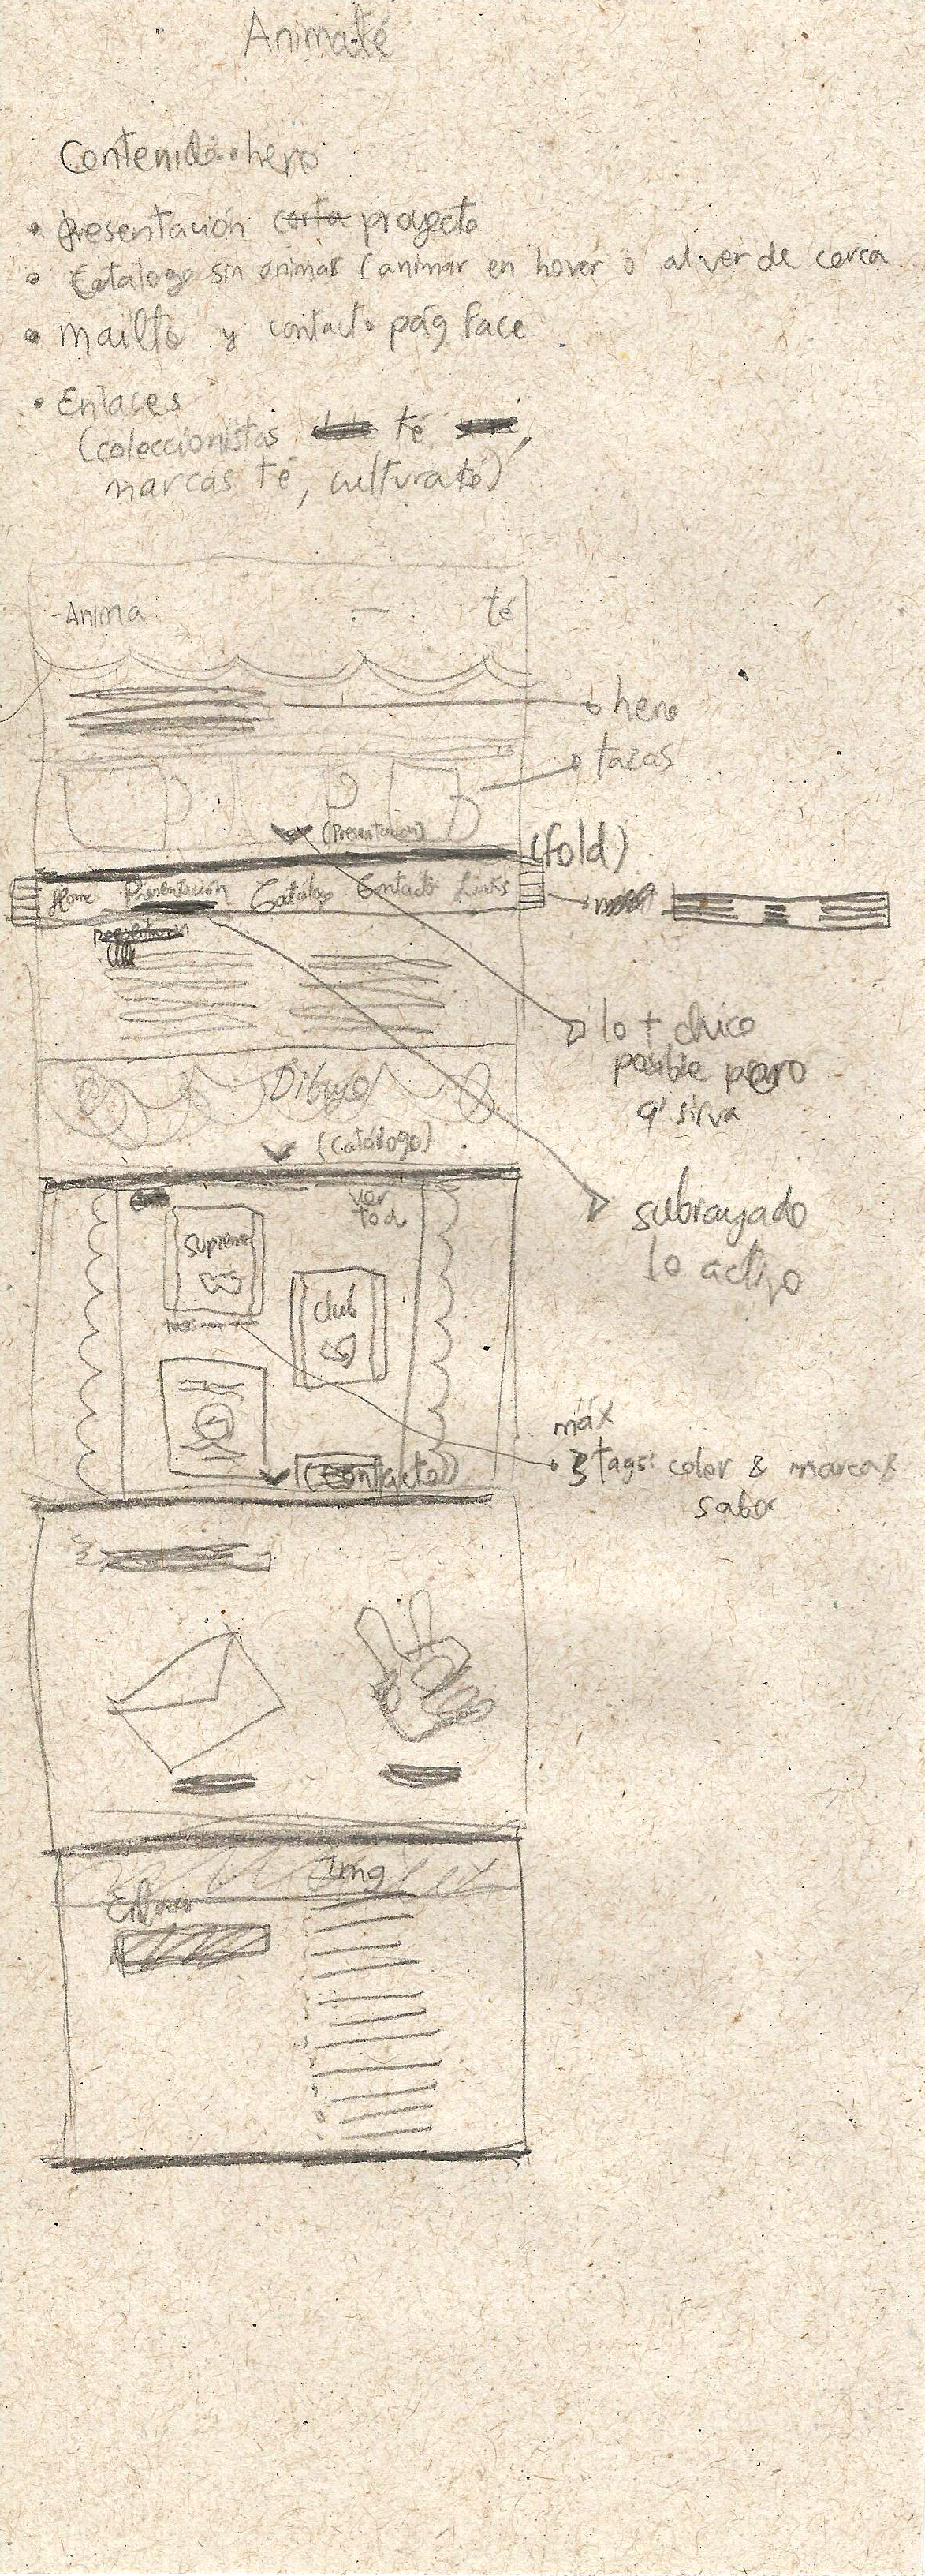 Animaté
Contenido • hero
• Presentación corta proyecto
• Catálogo sin animar (animar en hover o al ver de cerca
• mailto y contacto pág face
• Enlaces
(coleccionistas té ,
marcas té, cultura té)
-Anima — té
hero
tazas
(Presentación)
(fold)
Home Presentación Catálogo Contacto Links
Presentación
lo + chico
posible pero
q' sirva
Dibujo
(Catálogo)
subrayado
lo activo
ver
tod
supreme
club
tags
máx
3 tags: color & marca &
sabor
(Contacto)
Img